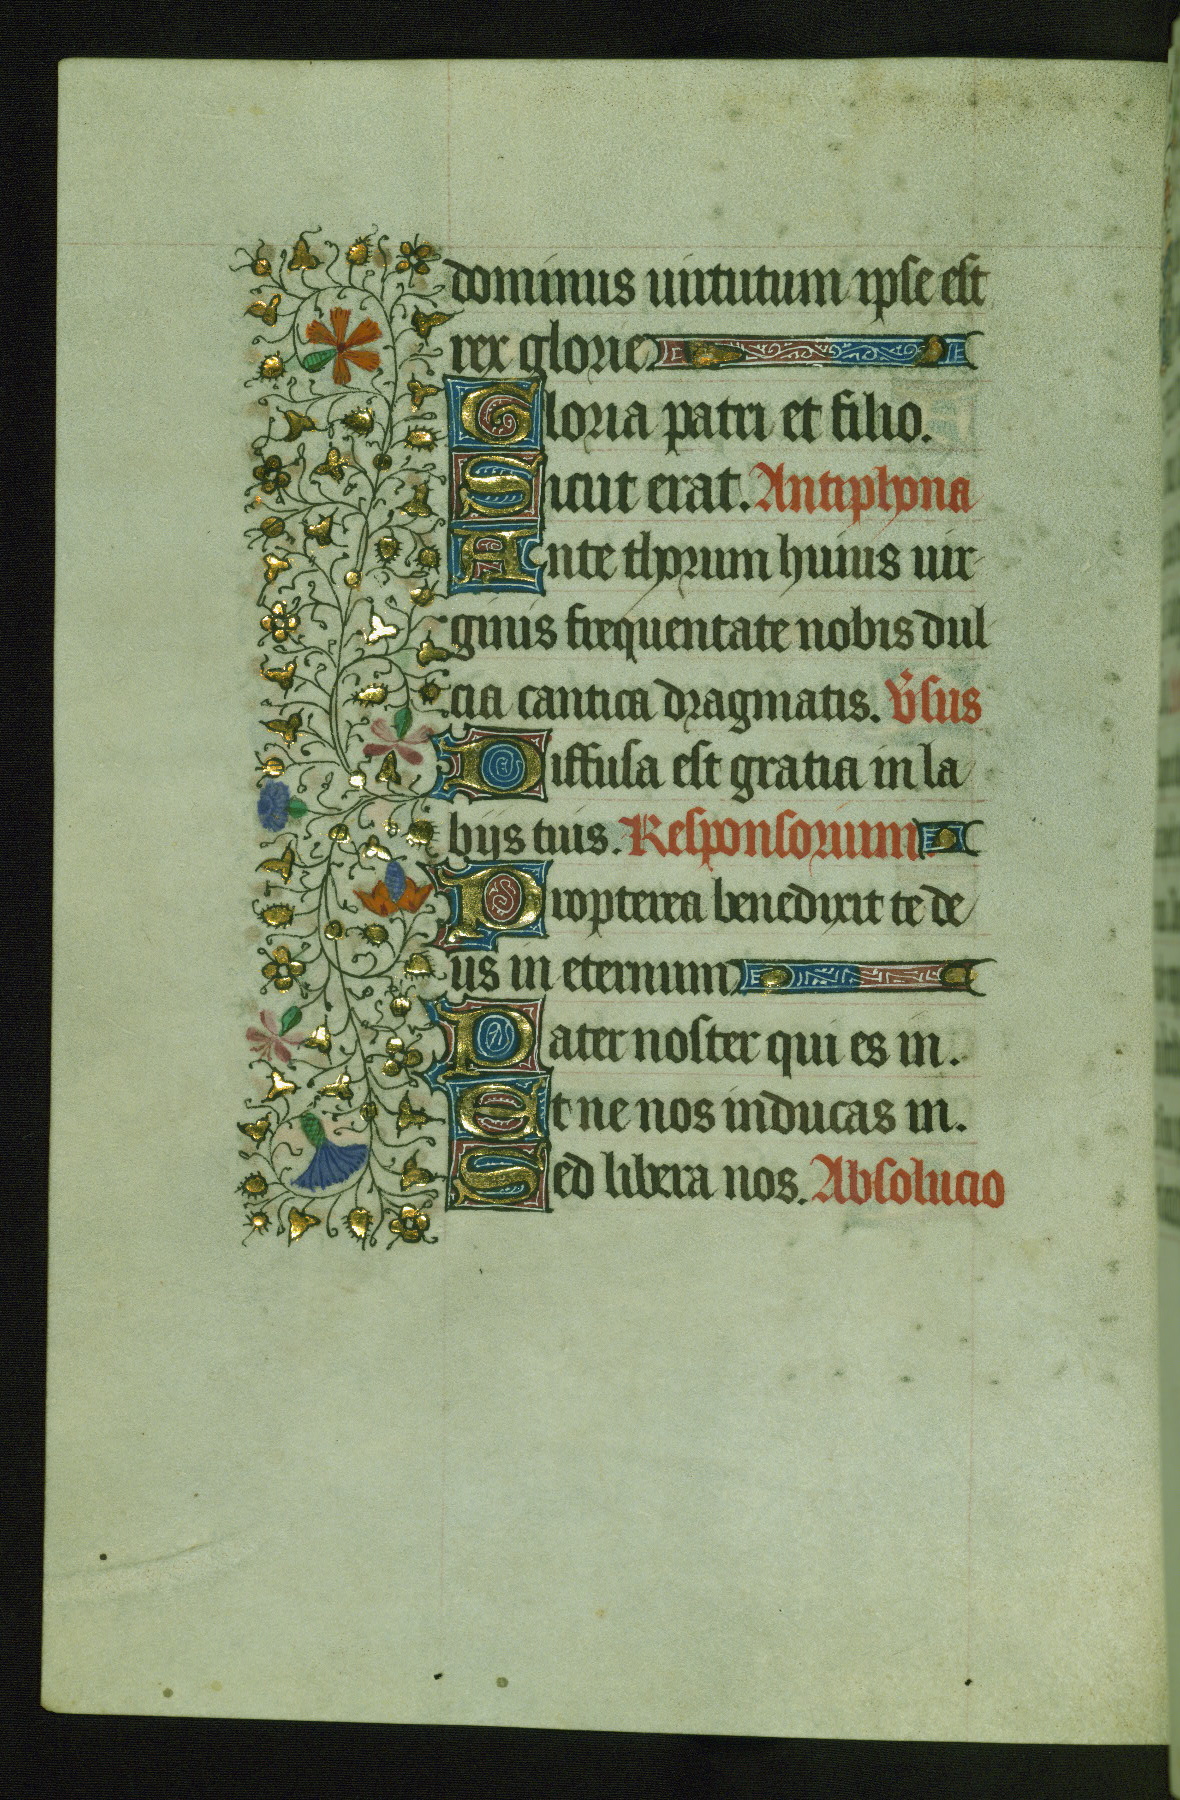 dominus uirtutum ipse est
rex glorie
Gloria patri et filio.
Sicut erat. Antiphona
Ante thorum huius uir-
ginis frequentate nobis dul
cia cantica dragmatis. v̄sus
Diffusa est gratia in la
bijs tuis. Responsorium.
Propterea benedixit te de
us in eternum
Pater noster qui es in.
Et ne nos inducas in.
Sed libera nos. Absolucio